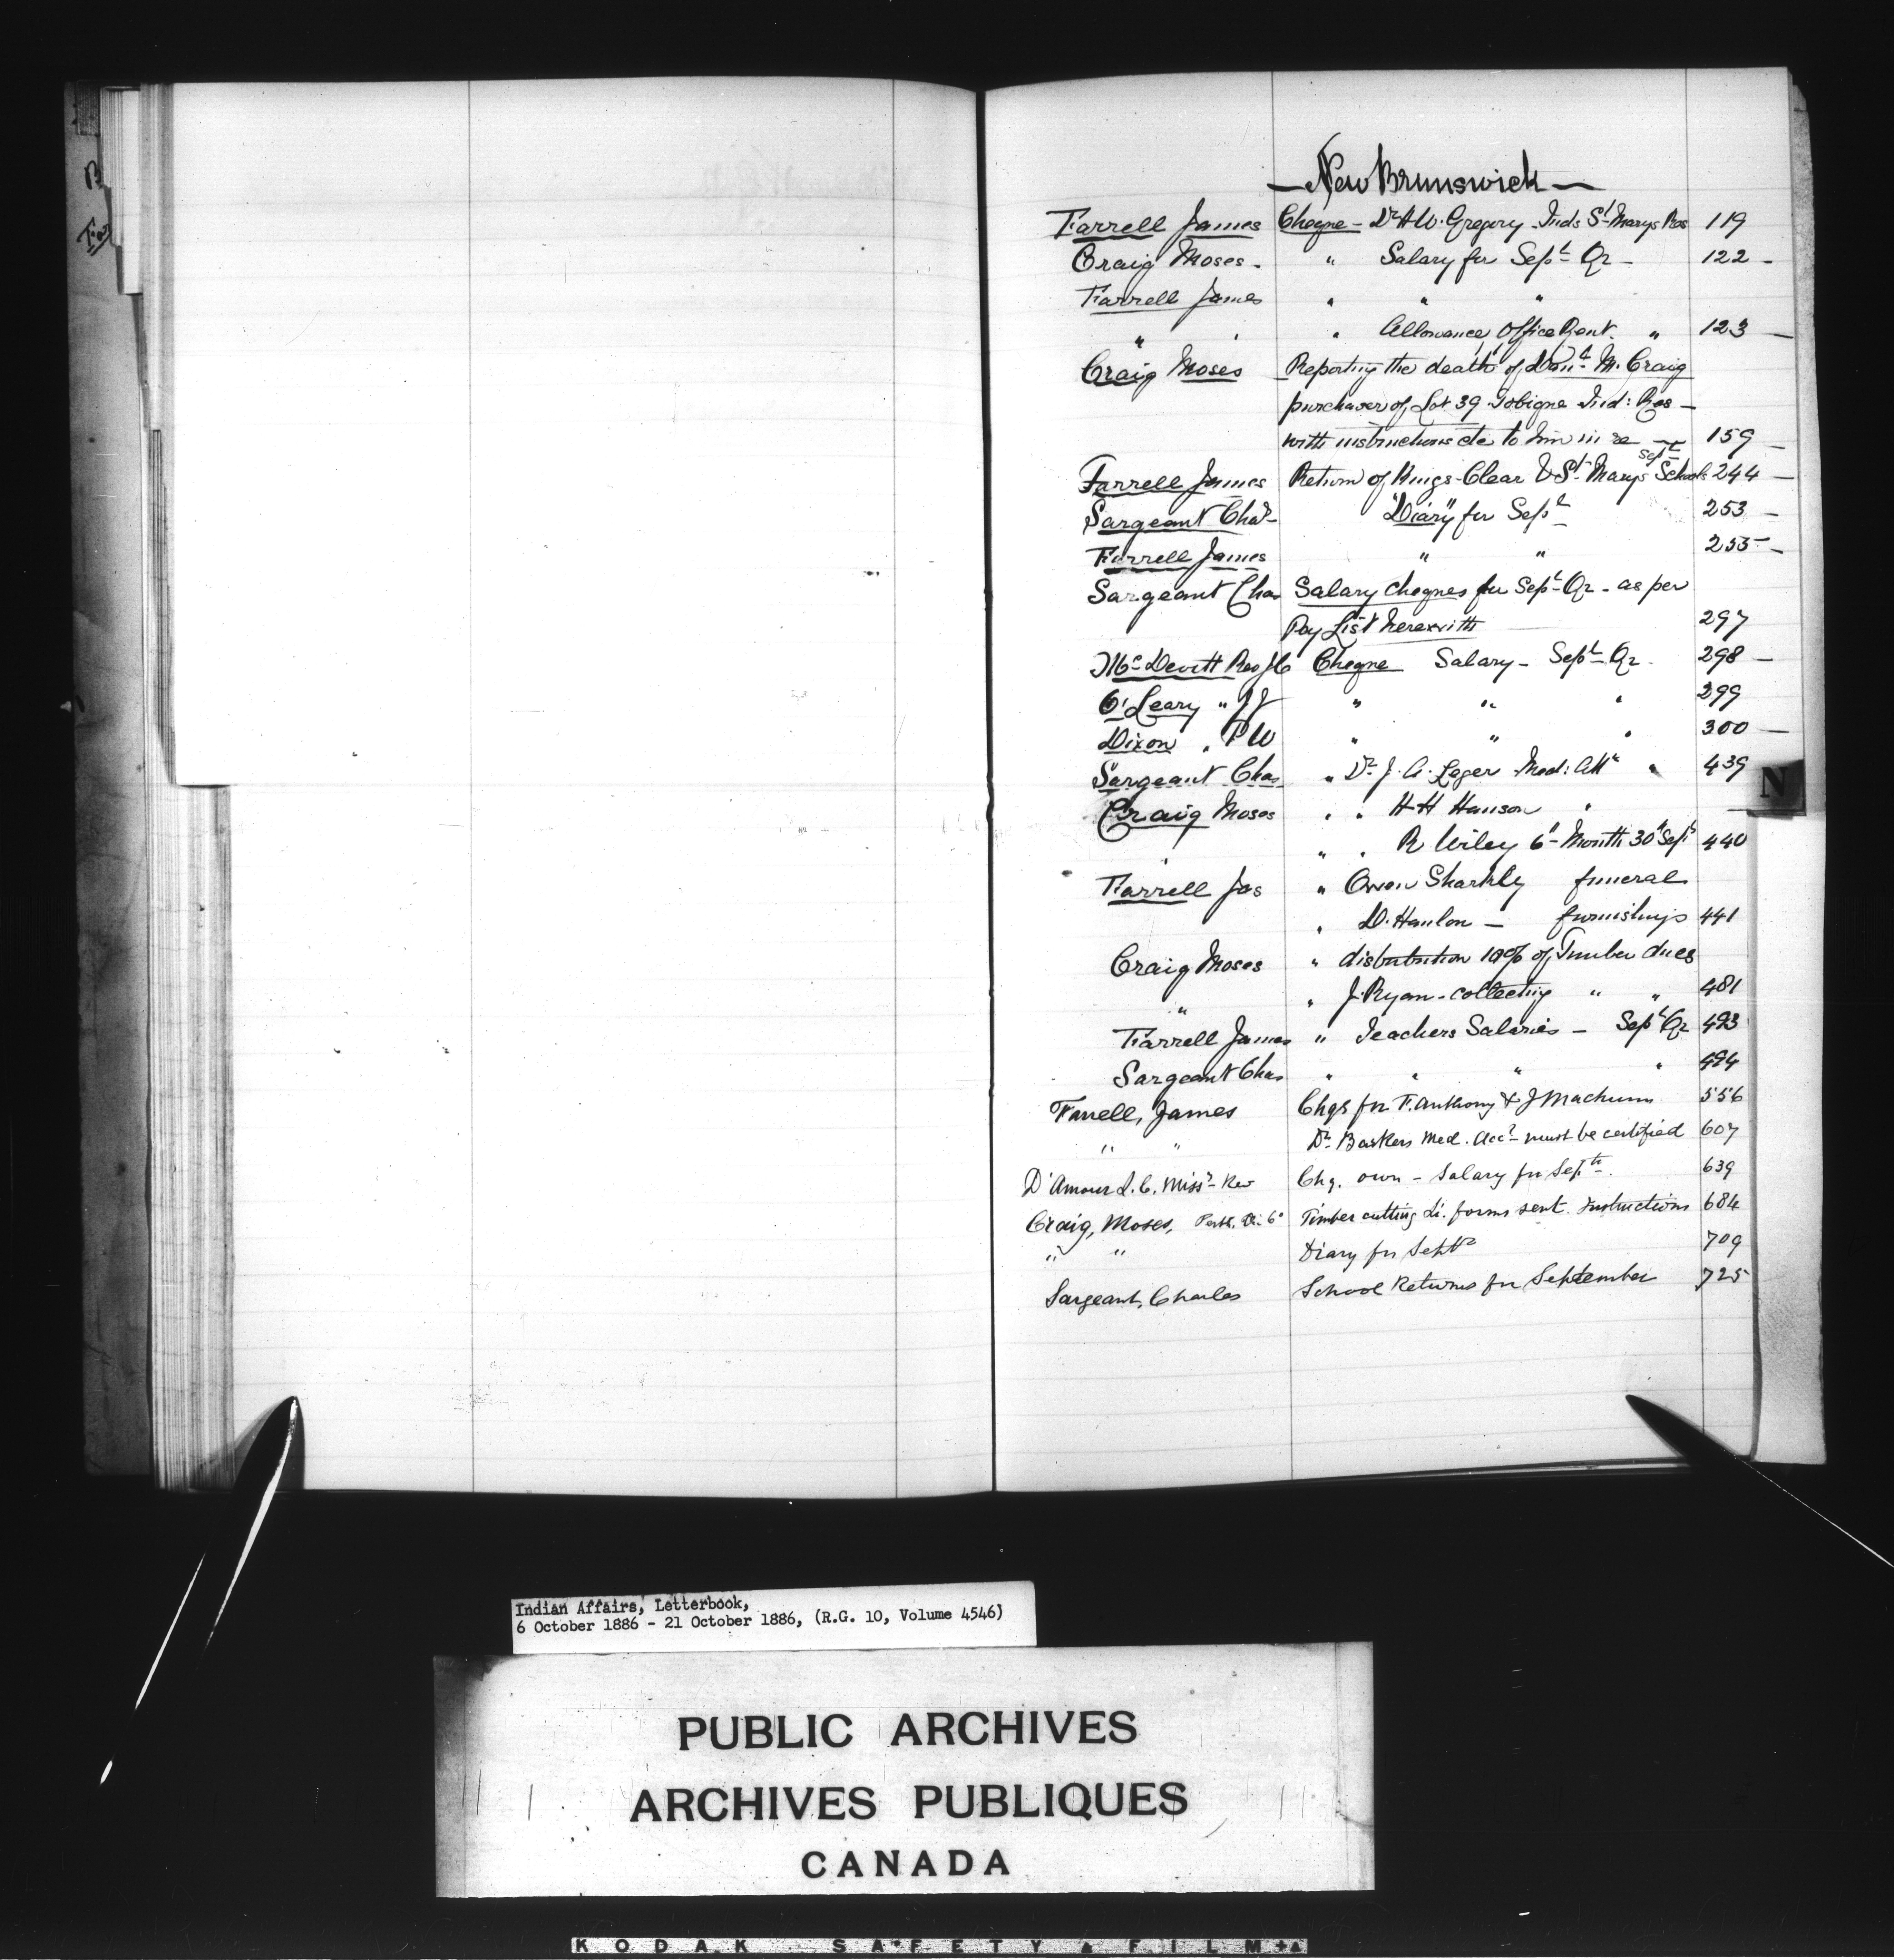 B
Far
— New Brunswick —
Farrell James Cheque - Dr H W. Gregory - Inds St Marys Res 119
Craig Moses - " Salary for Sept Qr - 122 -
Farrell James " " "
" " " Allowance, Office Rent. " 123 -
Craig Moses Reporting the death of Danl M. Craig
purchaser of Lot 39 Tobique Ind: Res -
with instructions etc to him in re 159 -
Sept
Farrell James Return of Kings-Clear & St Marys Schools 244 -
Sargeant Chas "Diary" for Sept 253 -
Farrell James " " 255 -
Sargeant Chas Salary cheques for Sept Qr - as per
Pay List herewith 297
McDevitt Rev Cheque Salary - Sept Qr - 298 -
O'Leary " J J " " " 299
Dixon " P W " " " 300 -
Sargeant Chas " Dr J. A. Leger Med: Att " 439
Craig Moses " " H H Hanson " -
" " " R Wiley 6 Month 30 Sept 440
Farrell Jas " Owen Sharkly funeral
" D. Hanlon - furnishings 441
Craig Moses " distribution 10% of Timber dues
" " J. Ryan - collecting " " 481
Farrell James " Teachers Salaries - Sept Qr 493
Sargeant Chas " " " " 494
Farrell, James Chqs for F. Anthony & J Machum 556
" " Dr Baxters Med. Acct must be certified 607
D'Amour L. C. Missy Rev Chq. own - Salary for Sept. 639
Craig, Moses, Perth, Vic. Co Timber cutting Li. forms sent. Instructions 684
" " Diary for Septr 709
Sargeant, Charles School Returns for September 725
N
Indian Affairs, Letterbook,
6 October 1886 - 21 October 1886, (R.G. 10, Volume 4546)
PUBLIC ARCHIVES
ARCHIVES PUBLIQUES
CANADA
KODAK SAFETY FILM